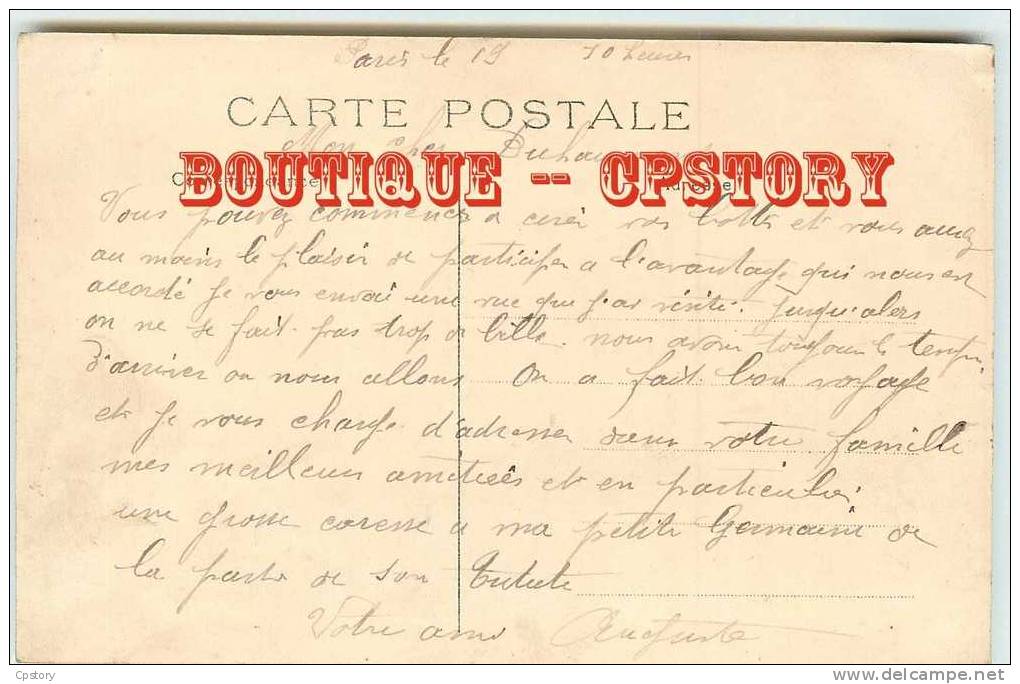 Paris le 19 10 heures
CARTE POSTALE
Mon cher
BOUTIQUE -- CPSTORY
Vous pouvez commencer a cirer vos bottes et vous aurez
au moins le plaisir de participer a l'avantage qui nous est
accordé Je vous envoi une vue que j'ai visité. Jusqu'alors
on ne se fait pas trop de bille. nous avons toujours le temps
d'arriver ou nous allons On a fait bon voyage
et je vous charge d'adresser dans votre famille
mes meilleurs amitiés et en particulier
une grosse caresse a ma petite Germaine de
la part de son Tutute
Votre ami Auguste
Cpstory
www.delcampe.net